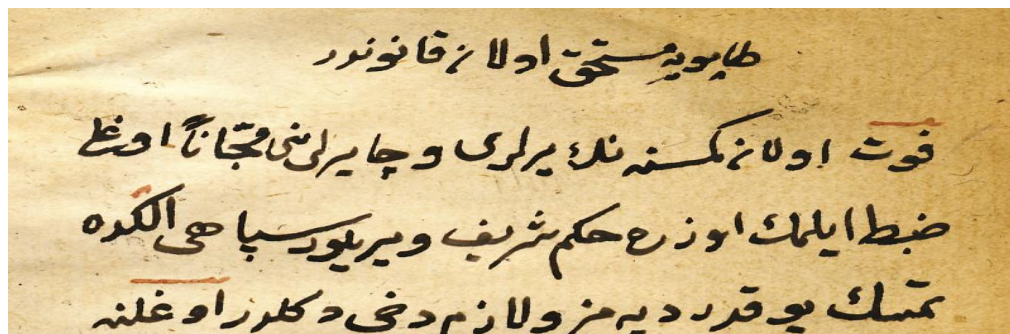 طاپویه مستحق اولان قانوندر
فوت اولان کمسنه نك یرلری و چایرلرینی مجّاناً اوغلی
ضبط ایلمك اوزره حکم شریف ویریلور سپاهی الکده
تمسك یوقدر دیه مز و لازم دخی دکلدر اوغلنه